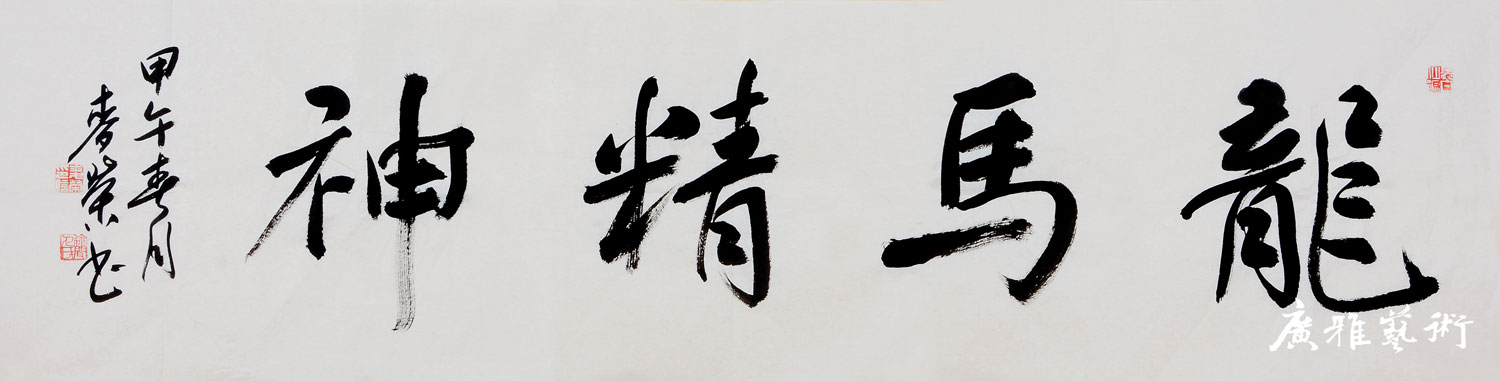 龍馬精神
甲午春月
春榮书
廣雅藝術